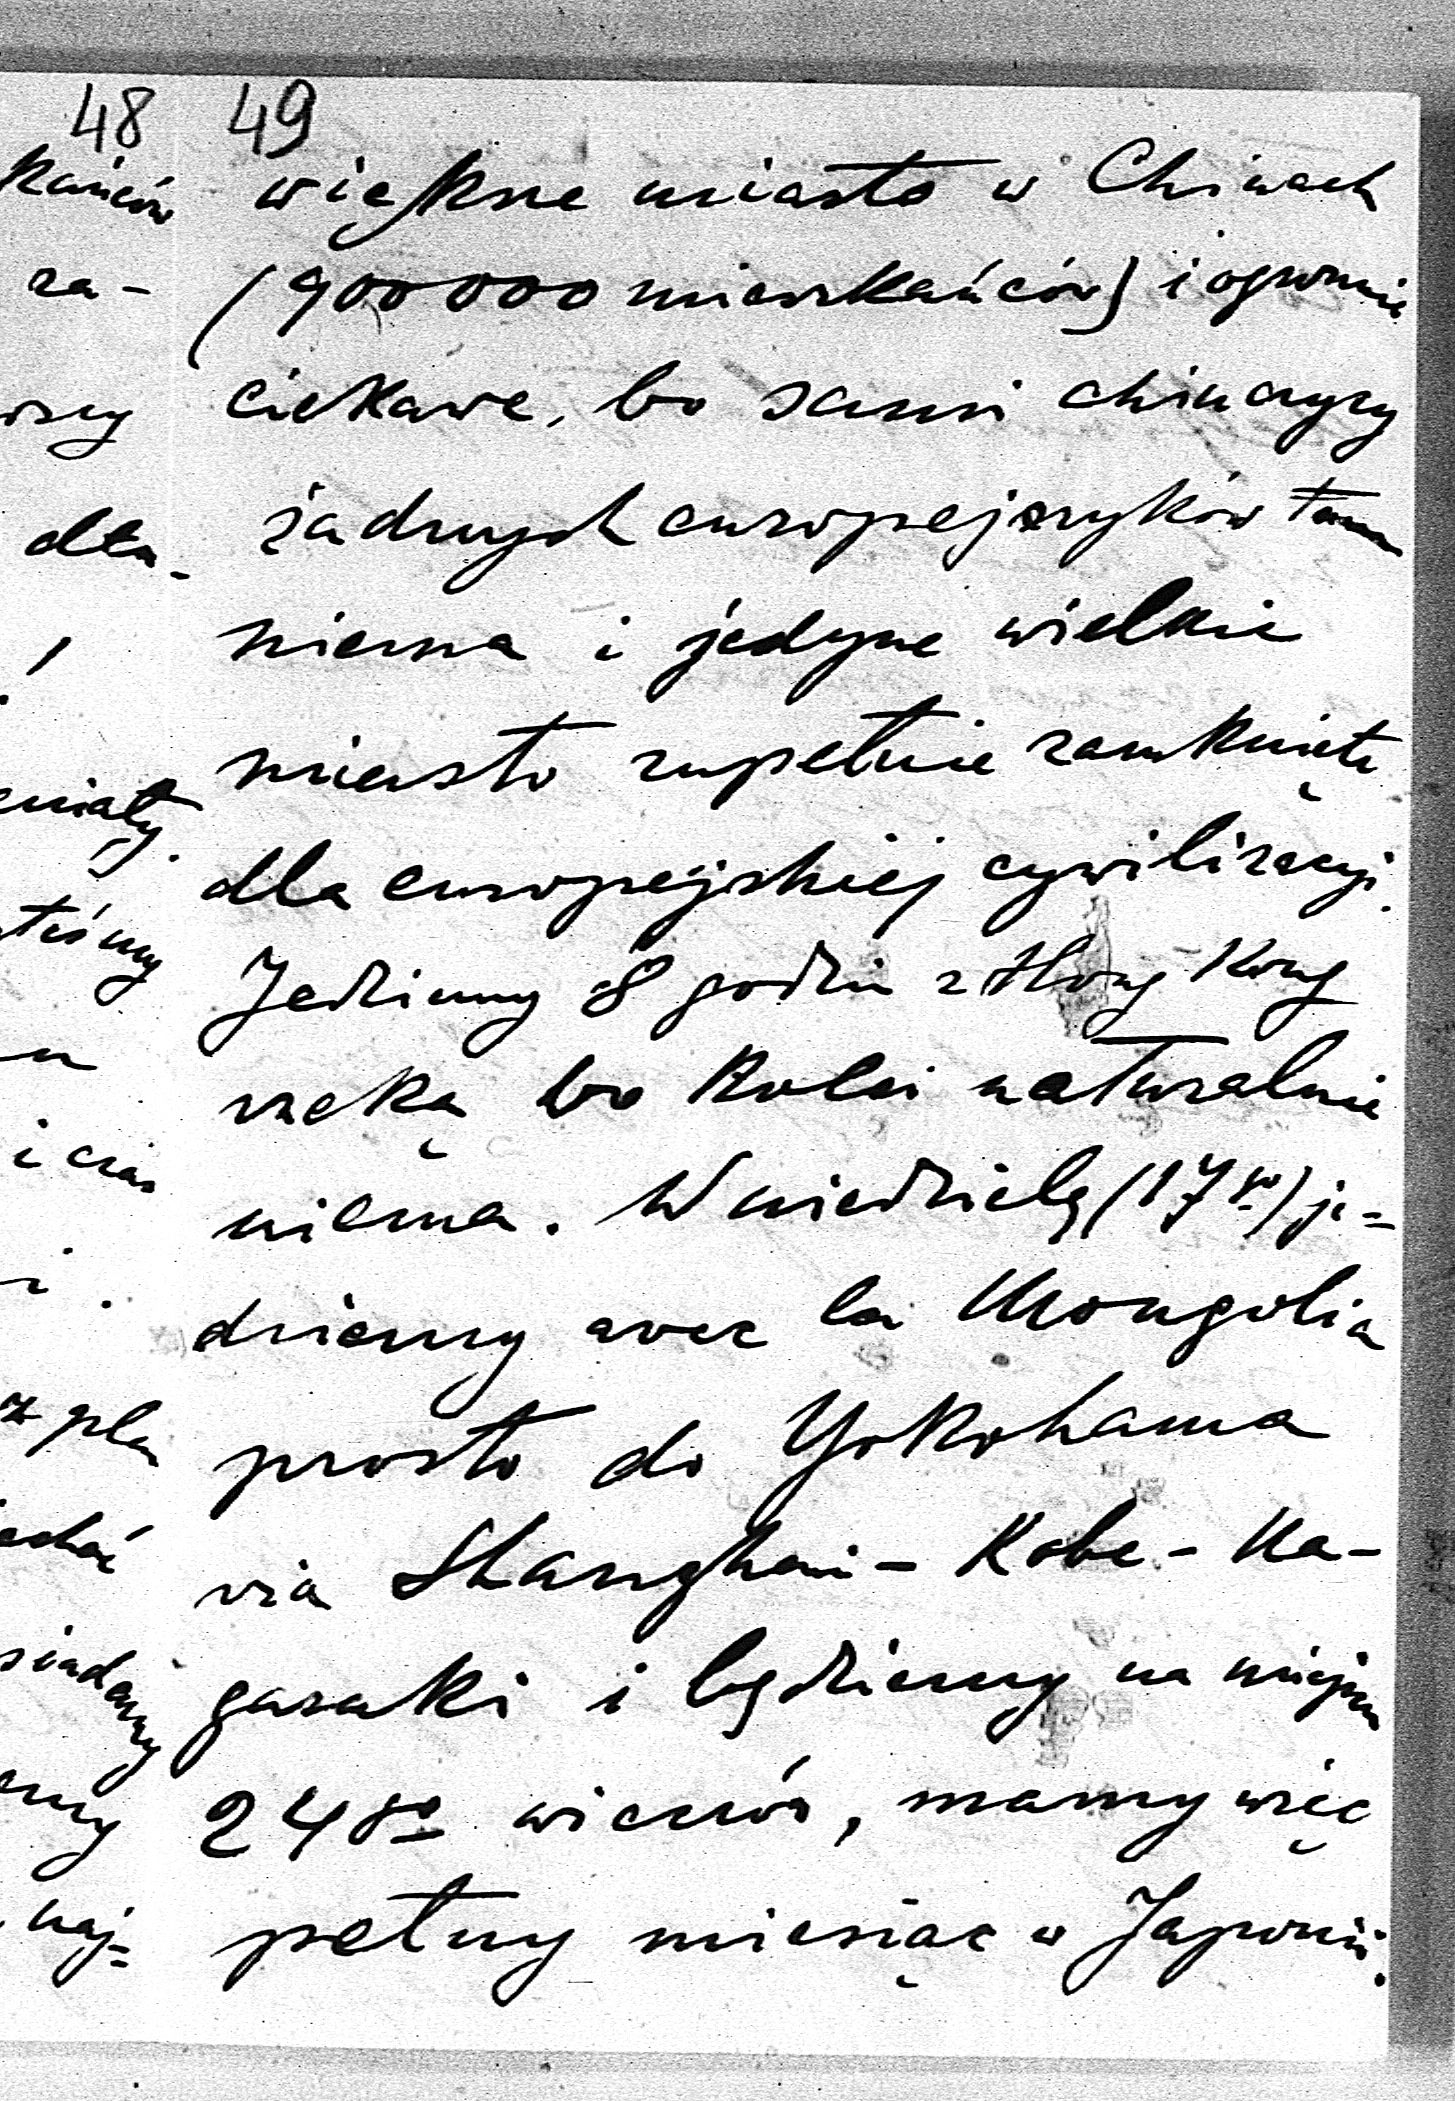 48
kańców
za-
wszy
dla-
i czas
z pla
jechać
siadamy
naj-
49
większe miasto w Chinach
(900000 mieszkańców) i ogromnie
ciekawe, bo sami chińczycy
żadnych europejczyków tam
niema i jedyne wielkie
miasto zupełnie zamknięte
dla europejskiej cywilizacyi.
Jedziemy 8 godzin z Hong Kong
rzeką bo kolei naturalnie
niema. W niedzielę (17go) je-
dziemy avec la Mongolia
prosto do Yokohama
via Shanghai - Kobe - Na-
gasaki i będziemy na miejscu
24go wieczór, mamy więc
pełny miesiąc w Japonii.